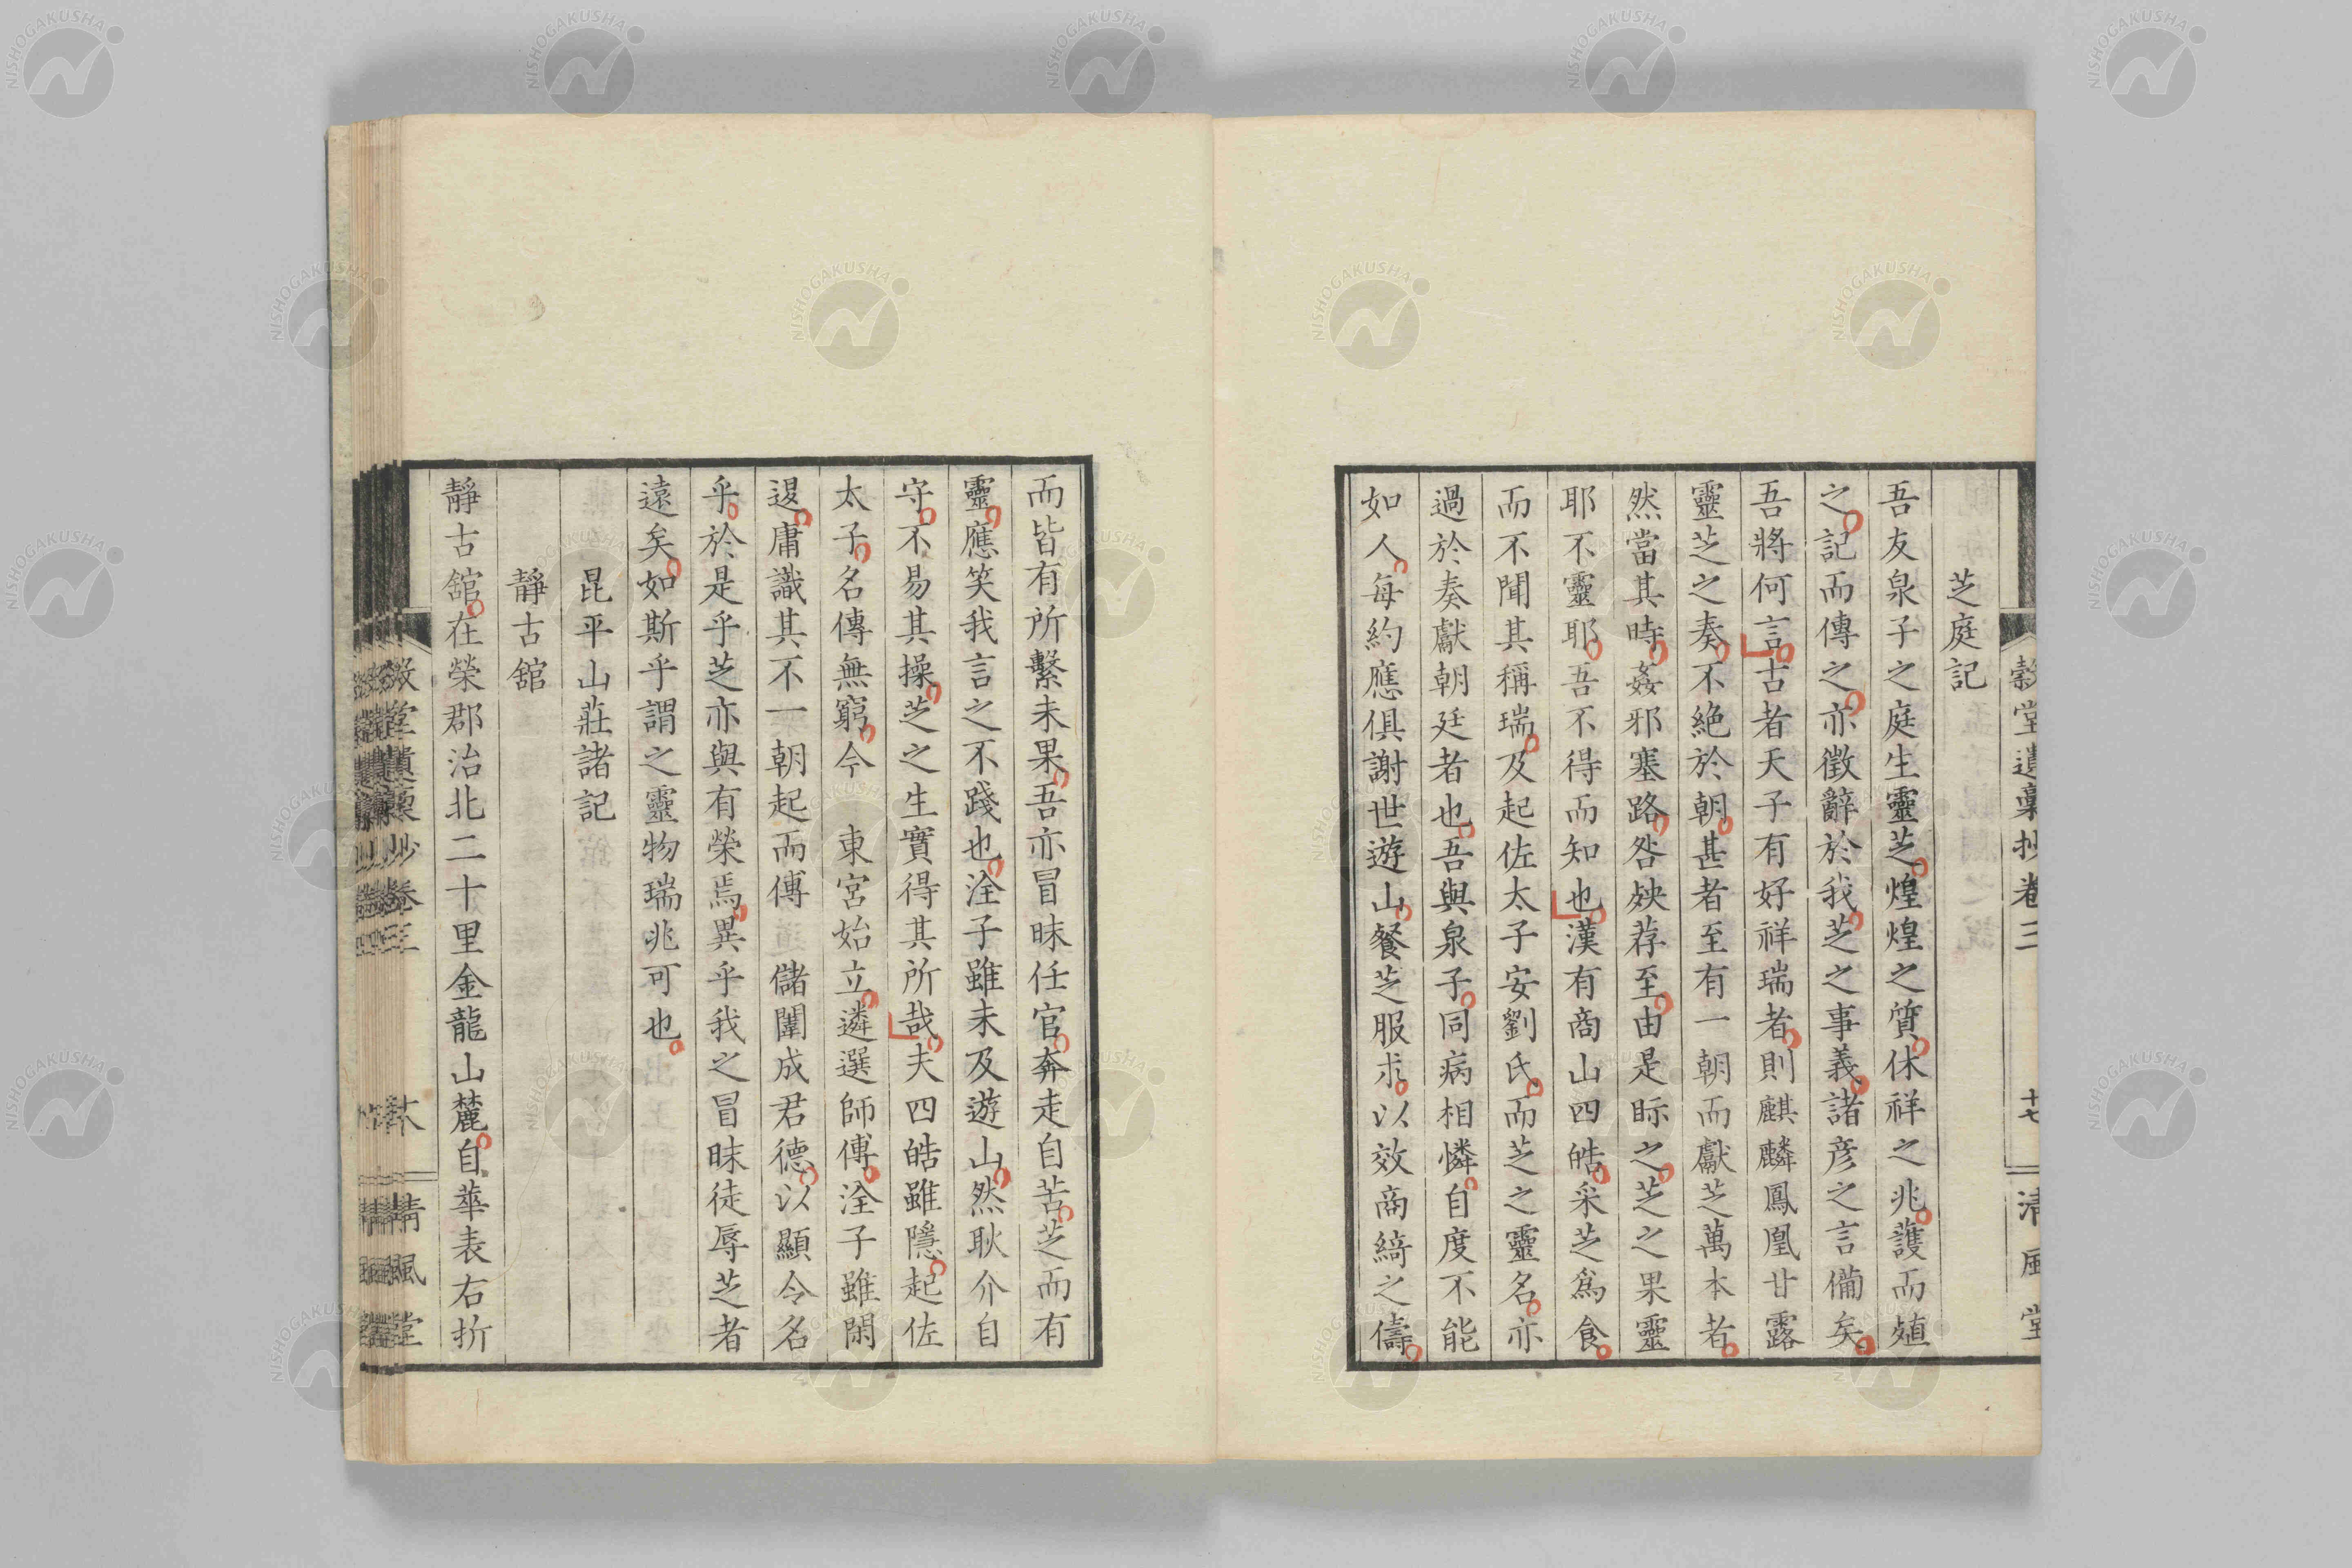 芝庭記
吾友泉子之庭生靈芝煌煌之質休祥之兆護而殖
之記而傳之亦徵辭於我芝之事義諸彦之言備矣
吾將何言古者天子有好祥瑞者則麒麟鳳凰甘露
靈芝之奏不絶於朝甚者至有一朝而獻芝萬本者
然當其時姦邪塞路咎殃荐至由是眎之芝之果靈
耶不靈耶吾不得而知也漢有商山四皓采芝爲食
而不聞其稱瑞及起佐太子安劉氏而芝之靈名亦
過於奏獻朝廷者也吾與泉子同病相憐自度不能
如人每約應俱謝世遊山餐芝服朮以效商綺之儔
穀堂遺稾抄卷三
十七
清風堂
而皆有所繫未果吾亦冒昧任官奔走自苦芝而有
靈應笑我言之不踐也泩子雖未及遊山然耿介自
守不易其操芝之生實得其所哉夫四皓雖隱起佐
太子名傳無窮今　東宮始立遴選師傅泩子雖閑
退庸識其不一朝起而傅　儲闈成君德以顯令名
乎於是乎芝亦與有榮焉異乎我之冒昧徒辱芝者
遠矣如斯乎謂之靈物瑞兆可也
昆平山莊諸記
靜古舘
靜古舘在榮郡治北二十里金龍山麓自華表右折